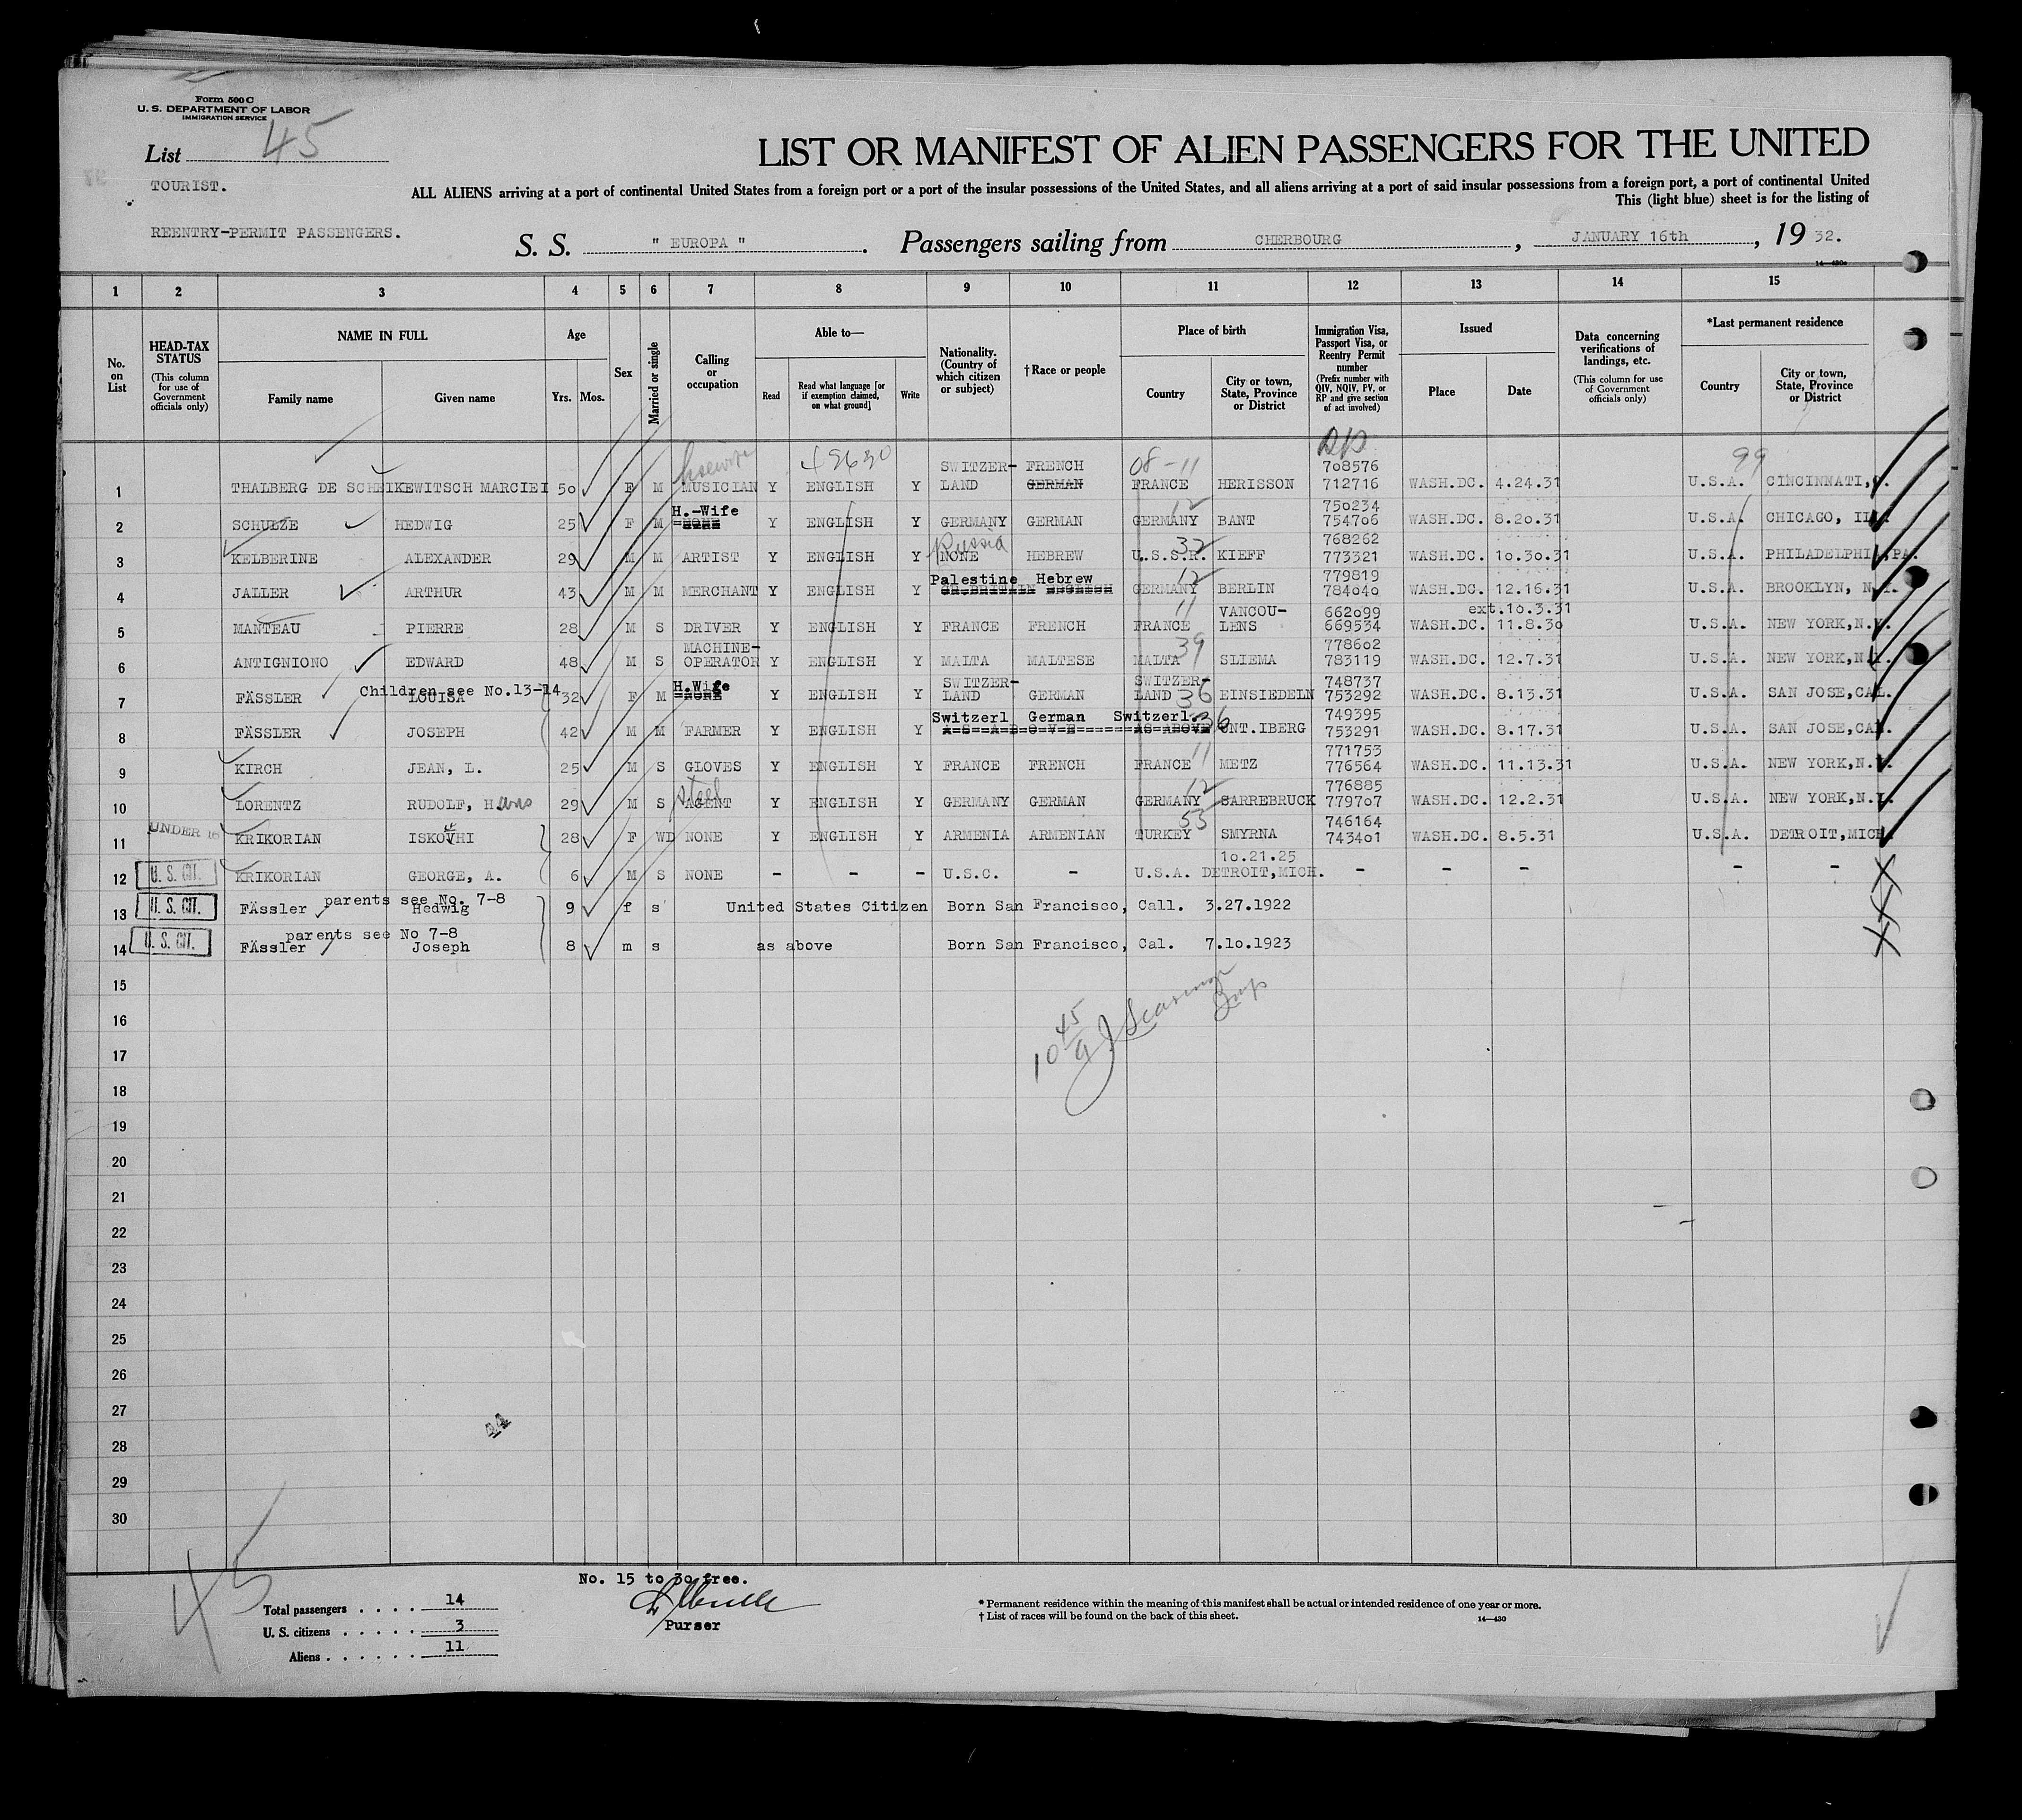 Form 500 C
U. S. DEPARTMENT OF LABOR
IMMIGRATION SERVICE
List 45
TOURIST.
REENTRY-PERMIT PASSENGERS.
LIST OR MANIFEST OF ALIEN PASSENGERS FOR THE UNITED
ALL ALIENS arriving at a port of continental United States from a foreign port or a port of the insular possessions of the United States, and all aliens arriving at a port of said insular possessions from a foreign port, a port of continental United
This (light blue) sheet is for the listing of
S. S. " EUROPA " . Passengers sailing from CHERBOURG , JANUARY 16th , 19 32.
1 2 3 4 5 6 7 8 9 10 11 12 13 14 15
No. on List
HEAD-TAX STATUS
(This column for use of Government officials only)
NAME IN FULL
Family name Given name
Age
Yrs. Mos.
Sex
Married or single
Calling or occupation
Able to—
Read
Read what language [or if exemption claimed, on what ground]
Write
Nationality. (Country of which citizen or subject)
† Race or people
Place of birth
Country
City or town, State, Province or District
Immigration Visa, Passport Visa, or Reentry Permit number
(Prefix number with QIV, NQIV, PV, or RP and give section of act involved)
Issued
Place Date
Data concerning verifications of landings, etc.
(This column for use of Government officials only)
*Last permanent residence
Country
City or town, State, Province or District
49690 SWITZER- FRENCH 08-11 708576 99
1 THALBERG DE SCHEIKEWITSCH MARCIEI 50 F M MUSICIAN Y ENGLISH Y LAND GERMAN FRANCE HERISSON 712716 WASH.DC. 4.24.31 U.S.A. CINCINNATI,
H.-Wife 12 750234
2 SCHULZE HEDWIG 25 F M NONE Y ENGLISH Y GERMANY GERMAN GERMANY BANT 754706 WASH.DC. 8.20.31 U.S.A. CHICAGO, ILL.
Russia 32 768262
3 KELBERINE ALEXANDER 29 M M ARTIST Y ENGLISH Y NONE HEBREW U.S.S.R. KIEFF 773321 WASH.DC. 10.30.31 U.S.A. PHILADELPHIA,PA.
Palestine Hebrew 12 779819
4 JALLER ARTHUR 43 M M MERCHANT Y ENGLISH Y GR.BRITAIN ENGLISH GERMANY BERLIN 784040 WASH.DC. 12.16.31 U.S.A. BROOKLYN, N.Y.
11 VANCOU- 662099 ext.10.3.31
5 MANTEAU PIERRE 28 M S DRIVER Y ENGLISH Y FRANCE FRENCH FRANCE LENS 669534 WASH.DC. 11.8.30 U.S.A. NEW YORK,N.Y.
MACHINE- 39 778602
6 ANTIGNIONO EDWARD 48 M S OPERATOR Y ENGLISH Y MALTA MALTESE MALTA SLIEMA 783119 WASH.DC. 12.7.31 U.S.A. NEW YORK,N.Y.
Children see No.13-14 H.Wife SWITZER- SWITZER- 748737
7 FÄSSLER LOUISA 32 F M NONE Y ENGLISH Y LAND GERMAN LAND 36 EINSIEDELN 753292 WASH.DC. 8.13.31 U.S.A. SAN JOSE,CAL.
Switzerl German Switzerl. 36 749395
8 FÄSSLER JOSEPH 42 M M FARMER Y ENGLISH Y A=S==A=B=O=V=E======AS=ABOVE UNT.IBERG 753291 WASH.DC. 8.17.31 U.S.A. SAN JOSE,CAL.
11 771753
9 KIRCH JEAN, L. 25 M S GLOVES Y ENGLISH Y FRANCE FRENCH FRANCE METZ 776564 WASH.DC. 11.13.31 U.S.A. NEW YORK,N.Y.
steel 12 776885
10 LORENTZ RUDOLF, Hans 29 M S AGENT Y ENGLISH Y GERMANY GERMAN GERMANY SARREBRUCK 779707 WASH.DC. 12.2.31 U.S.A. NEW YORK,N.Y.
UNDER 16 53 746164
11 KRIKORIAN ISKOVHI 28 F WD NONE Y ENGLISH Y ARMENIA ARMENIAN TURKEY SMYRNA 743401 WASH.DC. 8.5.31 U.S.A. DETROIT,MICH.
10.21.25
12 U. S. CIT. KRIKORIAN GEORGE, A. 6 M S NONE - - - U.S.C. - U.S.A. DETROIT,MICH. - - - - -
parents see No. 7-8
13 U. S. CIT. FÄssler Hedwig 9 f s United States Citizen Born San Francisco, Call. 3.27.1922
parents see No 7-8
14 U. S. CIT. FÄssler Joseph 8 m s as above Born San Francisco, Cal. 7.10.1923
15
16
17
18
19
20
21
22
23
24
25
26
27
28
29
30
45
No. 15 to 30 free.
Purser
Total passengers . . . . 14
U. S. citizens . . . . . 3
Aliens . . . . . . 11
* Permanent residence within the meaning of this manifest shall be actual or intended residence of one year or more.
† List of races will be found on the back of this sheet.
14—430